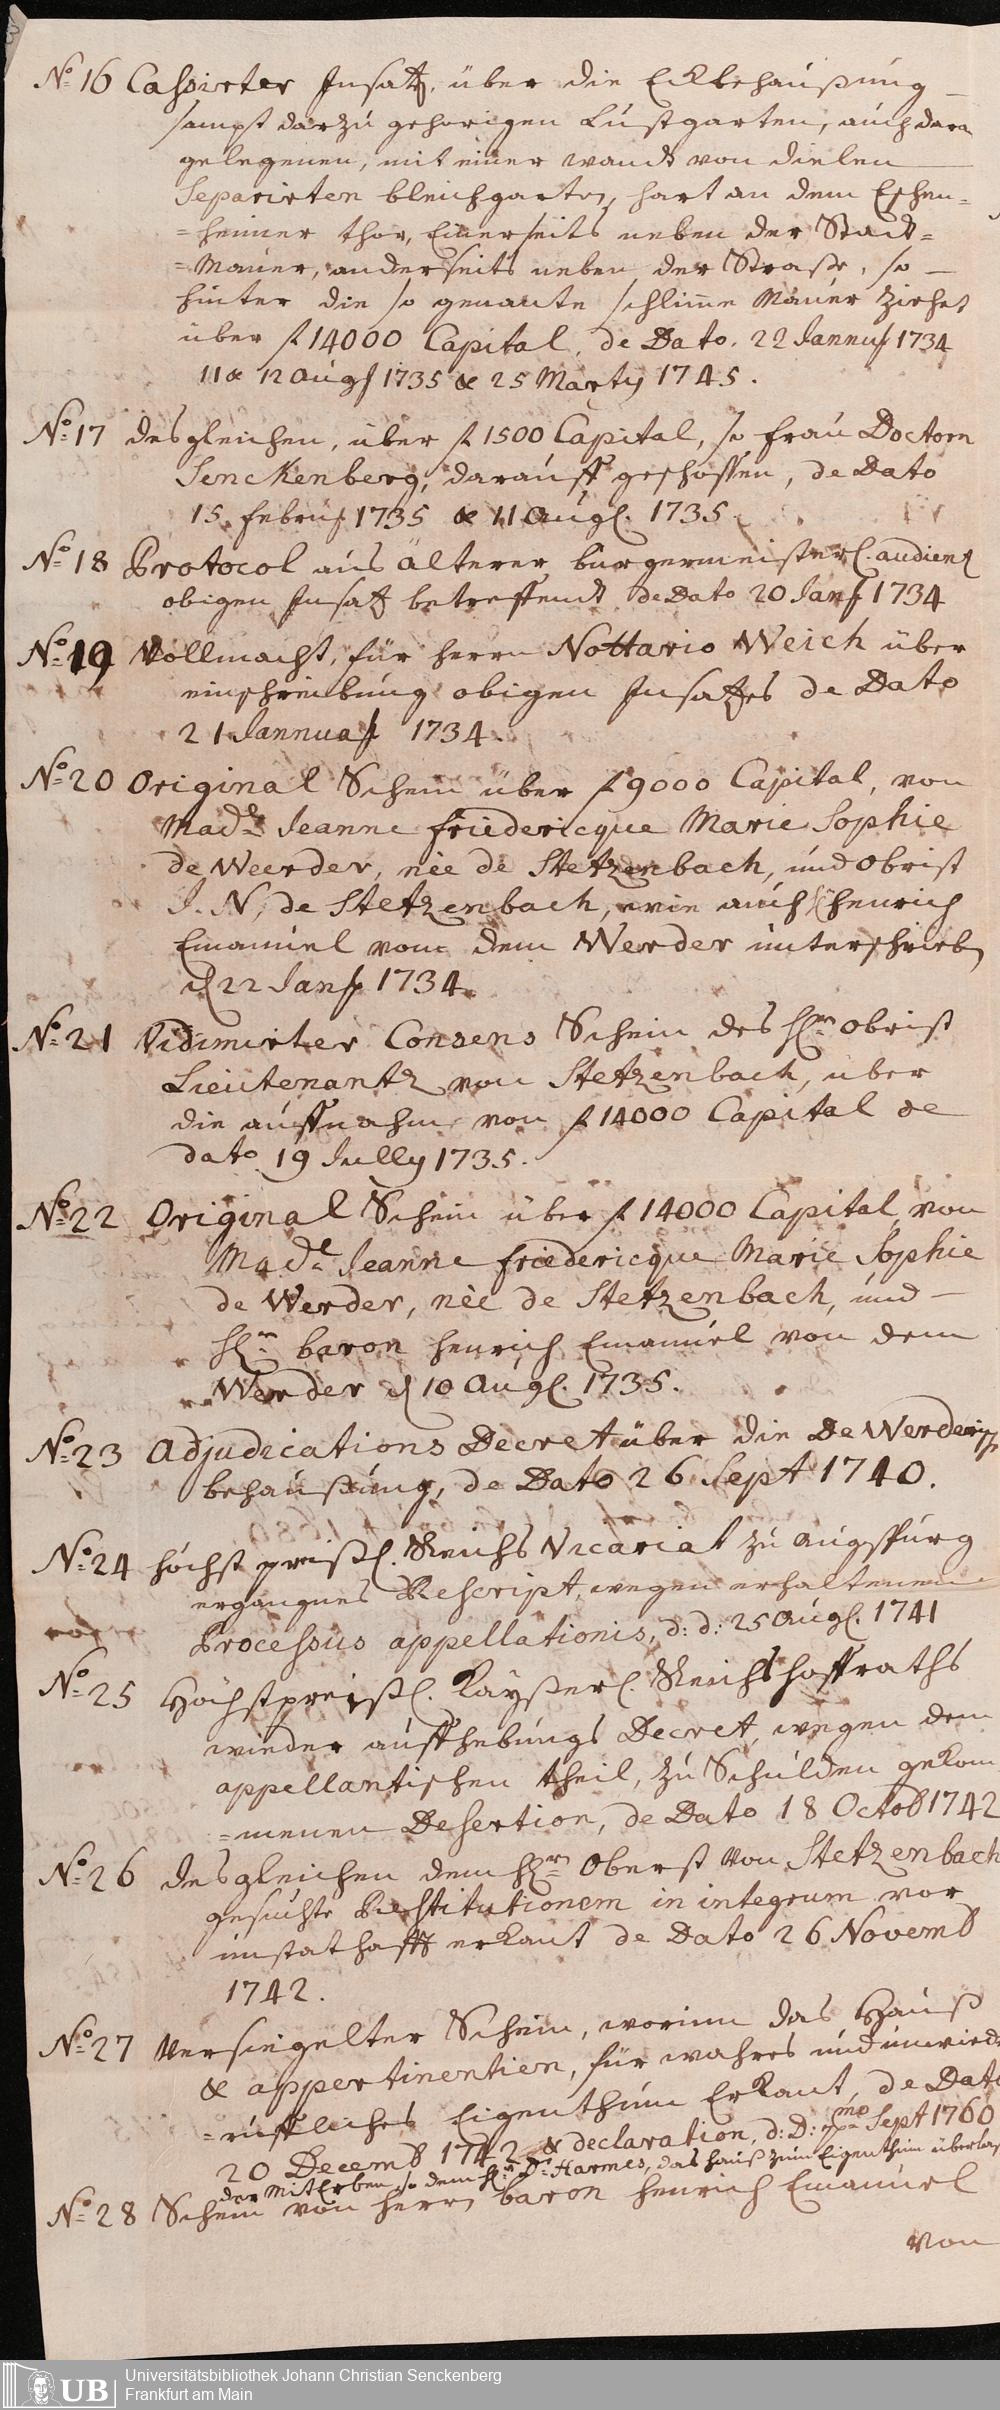 No 16 Cassirter Insatz, über die Eckbehaußung
sampt darzu gehorigen Lustgarten, auch daran
gelegenen, mit einer wandt von dielen
Separirten bleichgarten, hart an dem Eschen=
=heimer thor, Einerseits neben der Stadt=
=Mauer, anderseits neben der Straße, so
hinter die so genante schlime Mauer ziehet
über f 14000 Capital, de Dato. 22 Januar 1734
11 & 12 Aug 1735 & 25 Marty 1745.
No 17 desgleichen, über f 1500 Capital, so frau Doctorn
Senckenberg, darauff geschossen, de Dato
15 Febru 1735 & 11 Augl. 1735
No 18 Protocol aus älterer burgermeisterl. audienz
obigen Insatz betreffendt de Dato 20 Jan 1734
No 19 Vollmacht, für herrn Nottario Weich über
einschreibung obigen Insatzes de Dato
21 Jannua 1734.
No 20 Original Schein über f 9000 Capital, von
Made Jeanne friedericque Marie Sophie
de Weerder, née de Stetzenbach, und Obrist
J. N. de Stetzenbach, wie auch H henrich
Emanuel von dem Werder unterschrieben
d 22 Jan 1734.
No 21 Vidimirter Consens Schein des Hrn Obrist
Lieutenantz von Stetzenbach, uber
die auffnahm von f 14000 Capital de
dato 19 Jully 1735.
No 22 Original Schein über f 14000 Capital von
Made Jeanne friedericque Marie Sophie
de Werder, née de Stetzenbach, und
Hrn baron henrich Emanuel von dem
Werder d 10 Augl. 1735.
No 23 Adjudications Decret über die De Werderische
behaußung, de Dato 26 Sept 1740.
No 24 höchst preißl. Reichs Vicariat zu Augspurg
ergangnes Rescript, wegen erhaltenem
Processus appellationis, d: d: 25 Augl. 1741
No 25 Höchstpreißl. Kayßerl. Reichshoffraths
wieder auffhebungs Decret, wegen dem
appellantischen theil, zu Schulden gekom
=menen Desertion, de Dato 18 Octob 1742
No 26 desgleichen dem Hrn Oberst Von Stetzenbach
gesuchte Restitutionem in integrum vor
unstathafft erkant de Dato 26 Novemb
1742.
No 27 Versiegelter Schein, worinn das Hauß
& appertinentien, für wahres und unwied
=ruffliches Eigenthum Erkant, de Dato
20 Decemb 1742 & declaration, d: D: Sept 1760
der Mit Erben, so dem Hrn Dr Harmes, das hauß zum Eigenthum überlas
No 28 Schein von herrn baron henrich Emanuel
von
UB Universitätsbibliothek Johann Christian Senckenberg
Frankfurt am Main